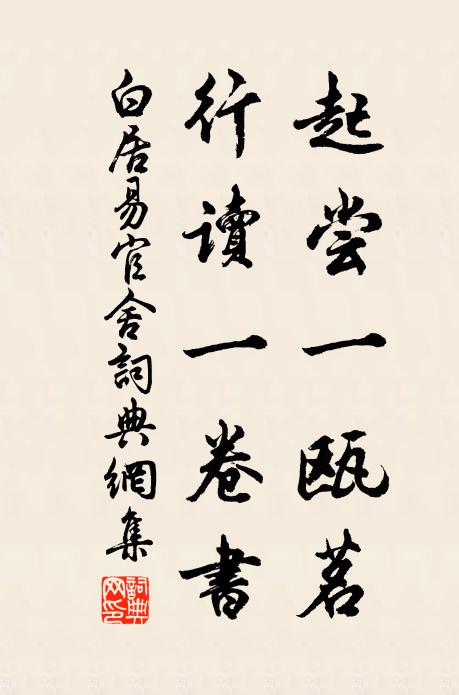 起尝一瓯茗
行读一卷書
白居易官舍詞典網集
詞典
网印